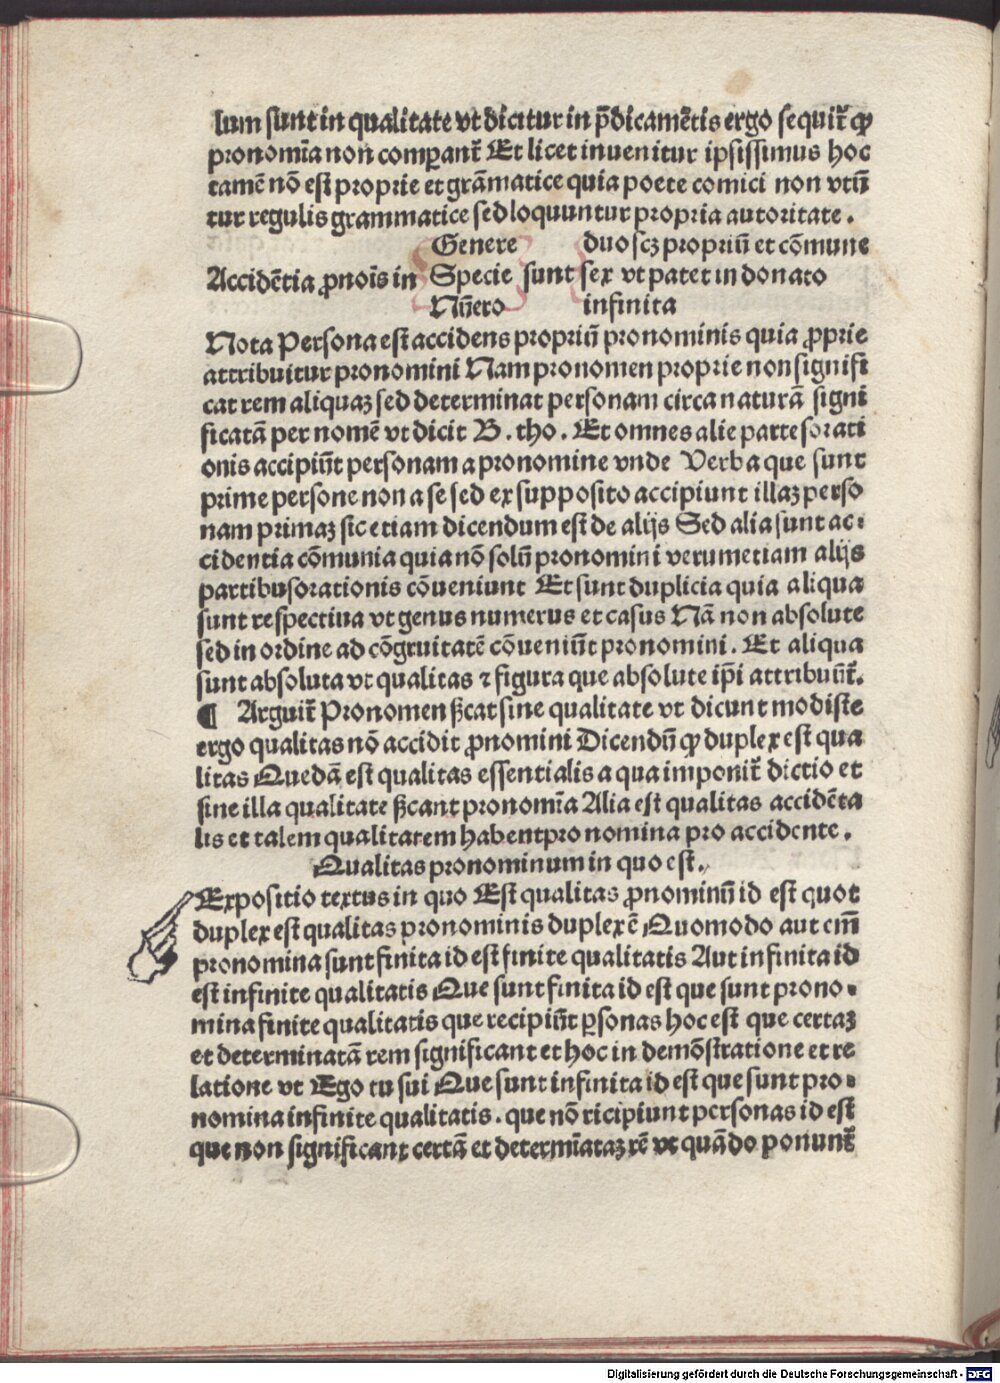 lum sunt in qualitate vt dicitur in p̄dicamētis ergo sequit̄ ꝙ
pronomīa non comꝑant̄ Et licet inuenitur ipsissimus hoc
tamē nō est proprie et grāmatice quia poete comici non vtū
tur regulis grammatice sed loquuntur propria autoritate .
Genere duo scꝫ propriū et cōmune
Accidētia ꝓnoīs in Specie sunt sex vt patet in donato
Nūero infinita
Nota Persona est accidens propriū pronominis quia ꝓprie
attribuitur pronomini Nam pronomen proprie non signifi
cat rem aliquaꝫ sed determinat personam circa naturā signi
ficatā per nomē vt dicit B . tho . Et omnes alie partes orati
onis accipiūt personam a pronomine vnde Verba que sunt
prime persone non a se sed ex supposito accipiunt illaꝫ perso
nam primaꝫ sic etiam dicendum est de alijs Sed alia sunt ac⸗
cidentia cōmunia quia nō solū pronomini verumetiam alijs
partibus orationis cōueniunt Et sunt duplicia quia aliqua
sunt respectiua vt genus numerus et casus Nā non absolute
sed in ordine ad cōgruitatē cōueniūt pronomini . Et aliqua
sunt absoluta vt qualitas ⁊ figura que absolute ip̄i attribuūt̄.
¶ Arguit̄ Pronomen ſ̄cat sine qualitate vt dicunt modiste
ergo qualitas nō accidit ꝓnomini Dicendū ꝙ duplex est qua
litas Quedā est qualitas essentialis a qua imponit̄ dictio et
sine illa qualitate ſ̄cant pronomīa Alia est qualitas accidēta
lis et talem qualitatem habent pronomina pro accidente .
Qualitas pronominum in quo est.
Expositio textus in quo Est qualitas ꝓnominū id est quot
duplex est qualitas pronominis duplex ē Quomodo aut em̄
pronomina sunt finita id est finite qualitatis Aut infinita id
est infinite qualitatis Que sunt finita id est que sunt prono⸗
mina finite qualitatis que recipiūt ꝑsonas hoc est que certaꝫ
et determinatā rem significant et hoc in demōstratione et re
latione vt Ego tu sui Que sunt infinita id est que sunt pro⸗
nomina infinite qualitatis . que nō ricipiunt personas id est
que non significant certā et determīataꝫ rē vt quādo ponunt̄
Digitalisierung gefördert durch die Deutsche Forschungsgemeinschaft - DFG